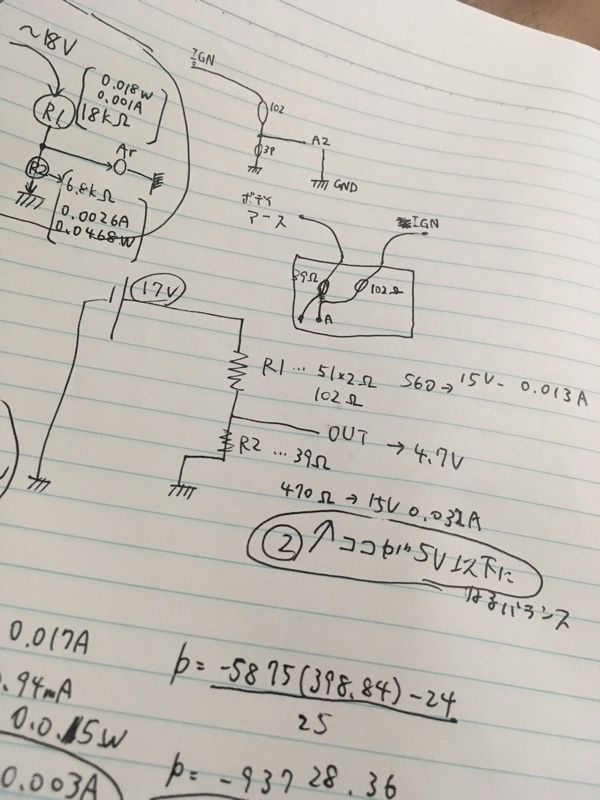 ~18V
R1
0.018W
0.001A
18kΩ
R2
6.8kΩ
0.0026A
0.0468W
Ar
IGN
102
39
A2
GND
ボディ
アース
IGN
39Ω
102Ω
A
17V
R1 … 51×2Ω
102Ω
560→15V- 0.013A
OUT → 4.7V
R2 … 39Ω
470Ω → 15V 0.032A
② ↑ココが5V以下に
なるバランス
0.017A
.94mA
0.015W
0.003A
p= -5875(398.84)-24
25
p= -93728.36